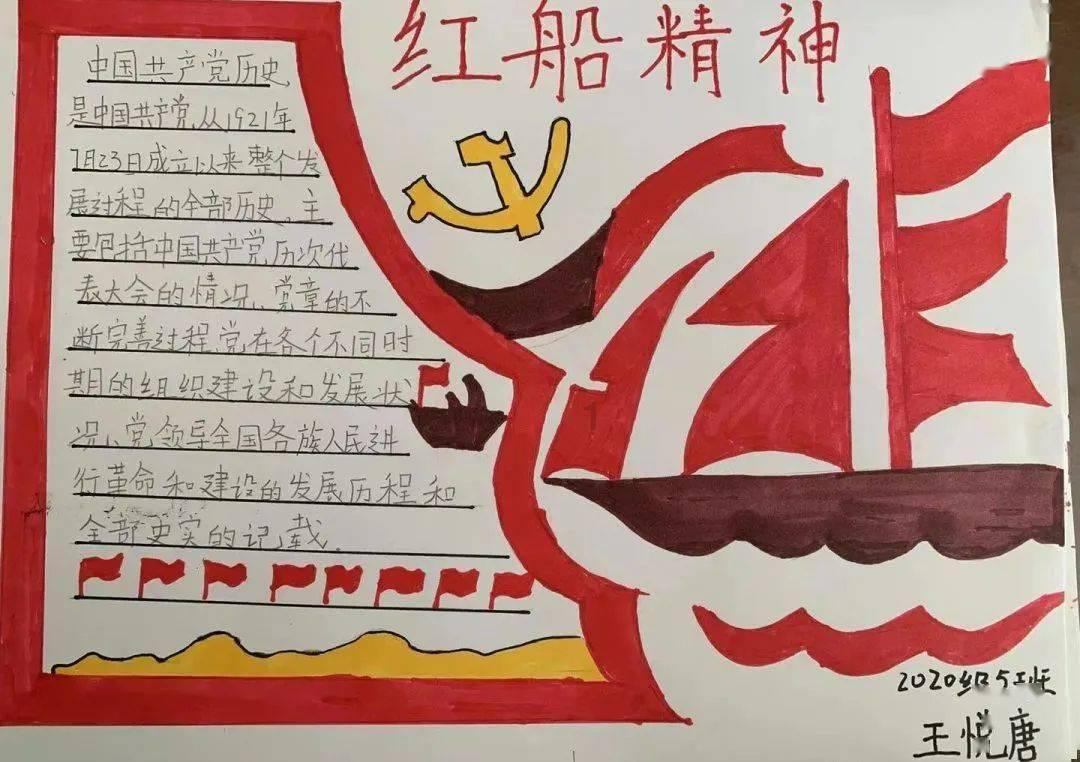 红船精神
中国共产党历史,
是中国共产党从1921年
7月23日成立以来整个发
展过程的全部历史、主
要包括中国共产党历次代
表大会的情况、党章的不
断完善过程党在各个不同时
期的组织建设和发展状
况、党领导全国各族人民进
行革命和建设的发展历程和
全部史实的记载.
2020级5班
王悦唐